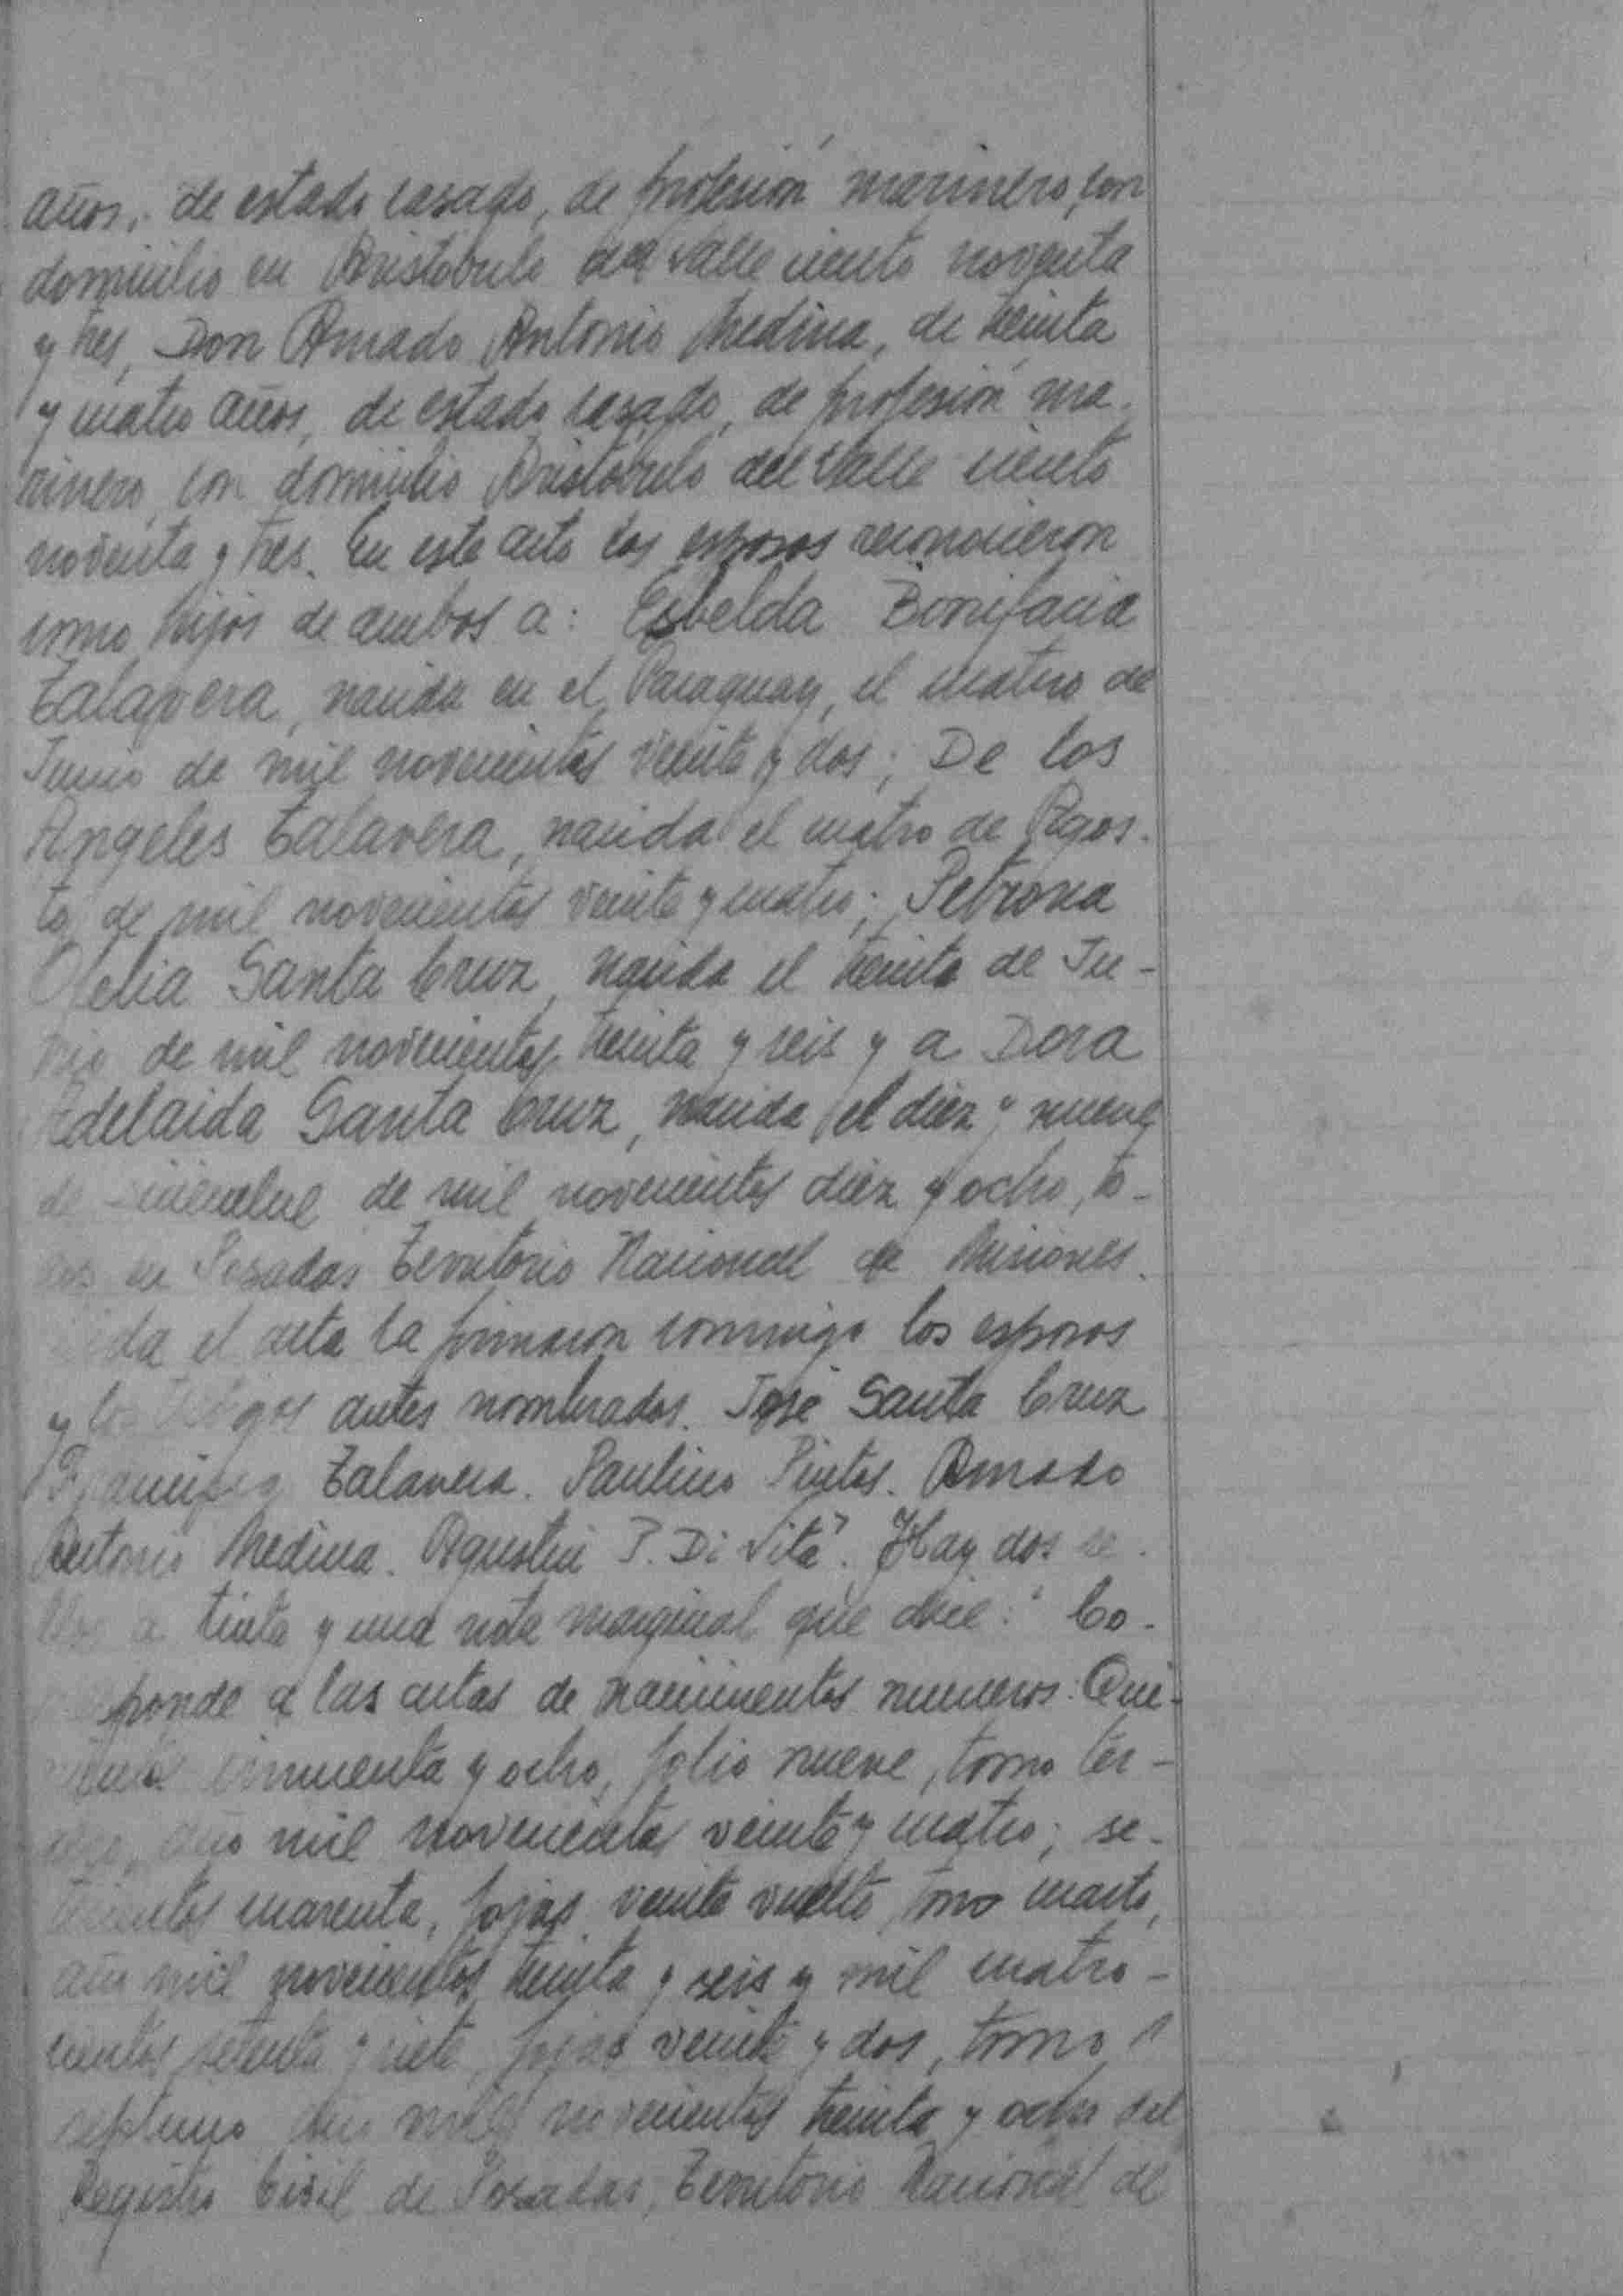 años, de estado casado, de profesión marinero, con
domicilio en Aristobulo del Valle ciento noventa
y tres, Don Amado Antonio Medina, de treinta
y cuatro años, de estado casado, de profesión ma-
rinero, con domicilio Aristobulo del Valle ciento
noventa y tres. En este acto los esposos reconocieron
como hijos de ambos a: Esbelda Bonifacia
Talavera, nacida en el Paraguay, el cuatro de
Junio de mil novecientos veinte y dos; De los
Angeles Talavera, nacida el cuatro de Agos-
to de mil novecientos veinte y cuatro; Petrona
Ofelia Santa Cruz, nacida el treinta de Ju-
nio de mil novecientos treinta y seis y a Dora
Adelaida Santa Cruz, nacida el diez y nueve
de de mil novecientos diez y ocho, to-
das en Posadas Territorio Nacional de Misiones.
el acta la firmaron conmigo los esposos
y los testigos antes nombrados. José Santa Cruz
Francisca Talavera. Paulino Pintos. Amado
Antonio Medina. Agustin P. Di Vita". Hay dos se-
llos a tinta y una nota marginal que dice: "Co-
rresponde a las actas de nacimientos numeros: Qui-
nientos cincuenta y ocho, folio nueve, tomo ter-
cero, año mil novecientos veinte y cuatro; se-
tecientos cuarenta, fojas veinte vuelto, tomo cuarto,
año mil novecientos treinta y seis y mil cuatro-
cientos setenta y siete, fojas veinte y dos, tomo
septimo año mil novecientos treinta y ocho del
Registro Civil de Posadas, Territorio Nacional de